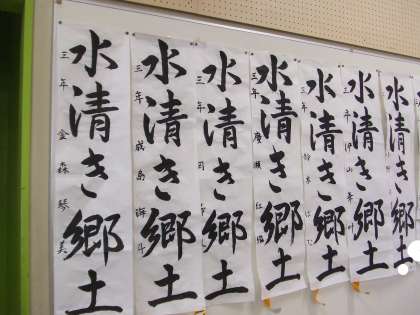 水清き郷土
三年 金森琴美
水清き郷土
三年 成島海斗
水清き郷土
三年
水清き郷土
三年 廣瀬
水清き郷土
三年 鈴木
水清き郷土
三年 伊山
水清き郷土